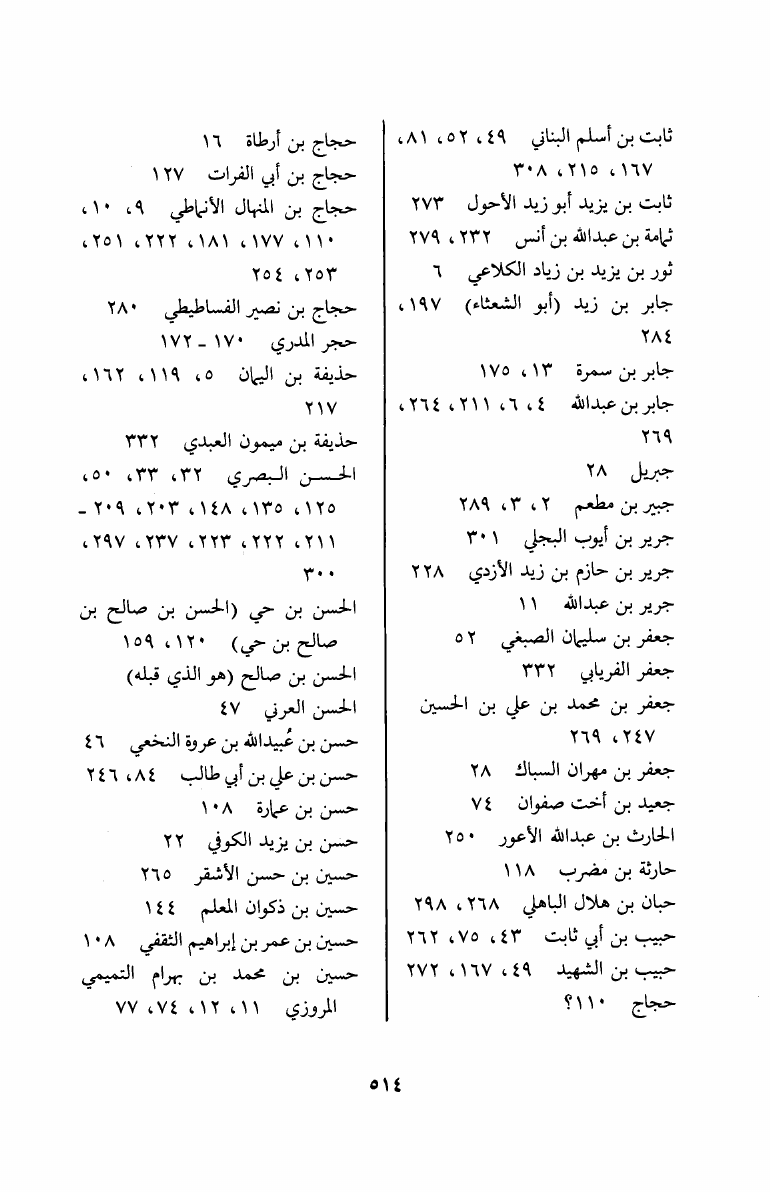 ثابت بن أسلم البناني ٤٩، ٥٢، ٨١،
١٦٧، ٢١٥، ٣٠٨
ثابت بن يزيد أبو زيد الأحول ٢٧٣
ثمامة بن عبدالله بن أنس ٢٣٢، ٢٧٩
ثور بن يزيد بن زياد الكلاعي ٦
جابر بن زيد (أبو الشعثاء) ١٩٧،
٢٨٤
جابر بن سمرة ١٣، ١٧٥
جابر بن عبدالله ٤، ٦، ٢١١، ٢٦٤،
٢٦٩
جبريل ٢٨
جبير بن مطعم ٢، ٣، ٢٨٩
جرير بن أيوب البجلي ٣٠١
جرير بن حازم بن زيد الأزدي ٢٢٨
جرير بن عبدالله ١١
جعفر بن سليمان الصبغي ٥٢
جعفر الفريابي ٣٣٢
جعفر بن محمد بن علي بن الحسين
٢٤٧، ٢٦٩
جعفر بن مهران السباك ٢٨
جعيد بن أخت صفوان ٧٤
الحارث بن عبدالله الأعور ٢٥٠
حارثة بن مضرب ١١٨
حبان بن هلال الباهلي ٢٦٨، ٢٩٨
حبيب بن أبي ثابت ٤٣، ٧٥، ٢٦٢
حبيب بن الشهيد ٤٩، ١٦٧، ٢٧٢
حجاج ١١٠؟
حجاج بن أرطاة ١٦
حجاج بن أبي الفرات ١٢٧
حجاج بن المنهال الأنماطي ٩، ١٠،
١١٠، ١٧٧، ١٨١، ٢٢٢، ٢٥١،
٢٥٣، ٢٥٤
حجاج بن نصير الفساطيطي ٢٨٠
حجر المدري ١٧٠ - ١٧٢
حذيفة بن اليمان ٥، ١١٩، ١٦٢،
٢١٧
حذيفة بن ميمون العبدي ٣٣٢
الحسن البصري ٣٢، ٣٣، ٥٠،
١٢٥، ١٣٥، ١٤٨، ٢٠٣، ٢٠٩ -
٢١١، ٢٢٢، ٢٢٣، ٢٣٧، ٢٩٧،
٣٠٠
الحسن بن حي (الحسن بن صالح بن
صالح بن حي) ١٢٠، ١٥٩
الحسن بن صالح (هو الذي قبله)
الحسن العرني ٤٧
حسن بن عُبيدالله بن عروة النخعي ٤٦
حسن بن علي بن أبي طالب ٨٤، ٢٤٦
حسن بن عمارة ١٠٨
حسن بن يزيد الكوفي ٢٢
حسين بن حسن الأشقر ٢٦٥
حسين بن ذكوان المعلم ١٤٤
حسين بن عمر بن إبراهيم الثقفي ١٠٨
حسين بن محمد بن بهرام التميمي
المروزي ١١، ١٢، ٧٤، ٧٧
٥١٤